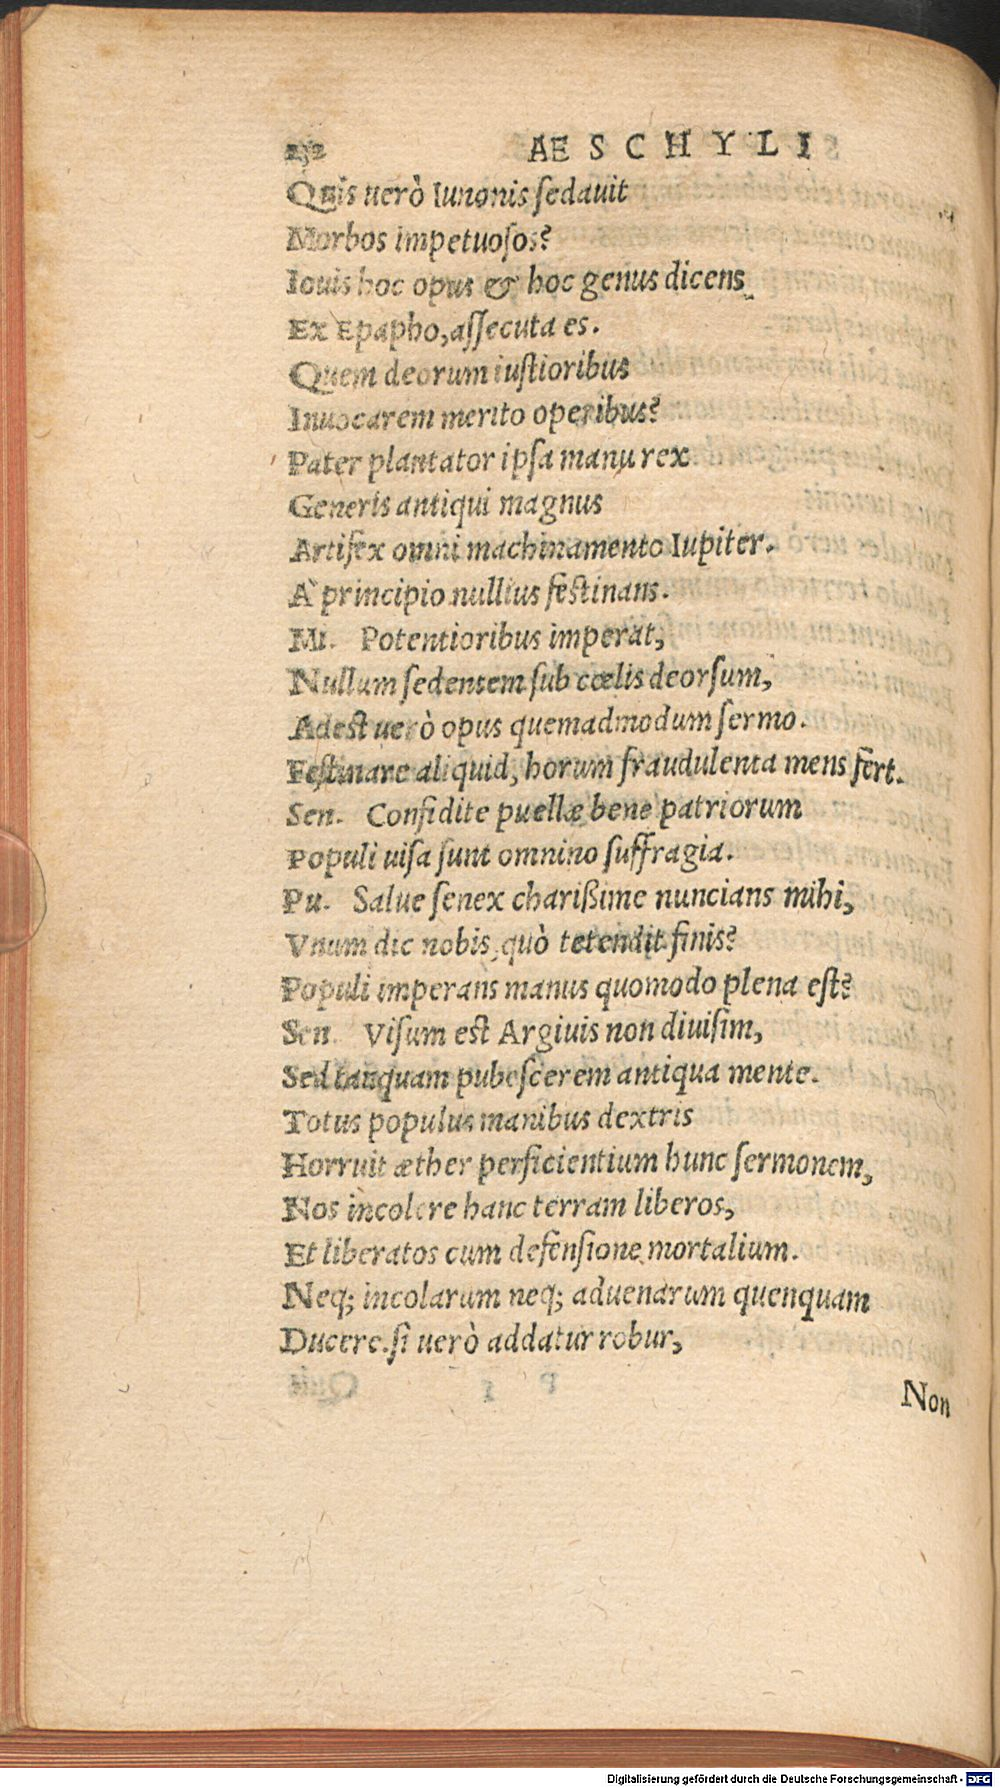 232 AESCHYLI
Quis uerò Iunonis sedauit
Morbos impetuosos?
Iouis hoc opus & hoc genus dicens
Ex Epapho, assecuta es.
Quem deorum iustioribus
Inuocarem merito operibus?
Pater plantator ipsa manu rex
Generis antiqui magnus
Artifex omni machinamento Iupiter.
A' principio nullius festinans.
Mi. Potentioribus imperat,
Nullum sedentem sub cœlis deorsum,
Adest uerò opus quemadmodum sermo.
Festinare aliquid, horum fraudulenta mens fert.
Sen. Confidite puellæ bene patriorum
Populi uisa sunt omnino suffragia.
Pu. Salue senex charißime nuncians mihi,
Vnum dic nobis, quò tetendit finis?
Populi imperans manus quomodo plena est?
Sen. Visum est Argiuis non diuisim,
Sed tanquam pubescerem antiqua mente.
Totus populus manibus dextris
Horruit æther perficientium hunc sermonem,
Nos incolere hanc terram liberos,
Et liberatos cum defensione mortalium.
Neq; incolarum neq; aduenarum quenquam
Ducere. si uerò addatur robur,
Non
Digitalisierung gefördert durch die Deutsche Forschungsgemeinschaft - DFG